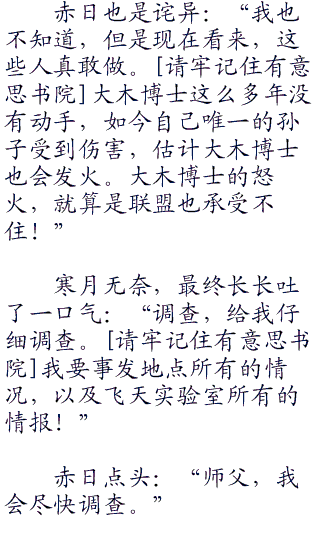 赤日也是诧异：“我也
不知道，但是现在看来，这
些人真敢做。[请牢记住有意
思书院]大木博士这么多年没
有动手，如今自己唯一的孙
子受到伤害，估计大木博士
也会发火。大木博士的怒
火，就算是联盟也承受不
住！”
寒月无奈，最终长长吐
了一口气：“调查，给我仔
细调查。[请牢记住有意思书
院]我要事发地点所有的情
况，以及飞天实验室所有的
情报！”
赤日点头：“师父，我
会尽快调查。”